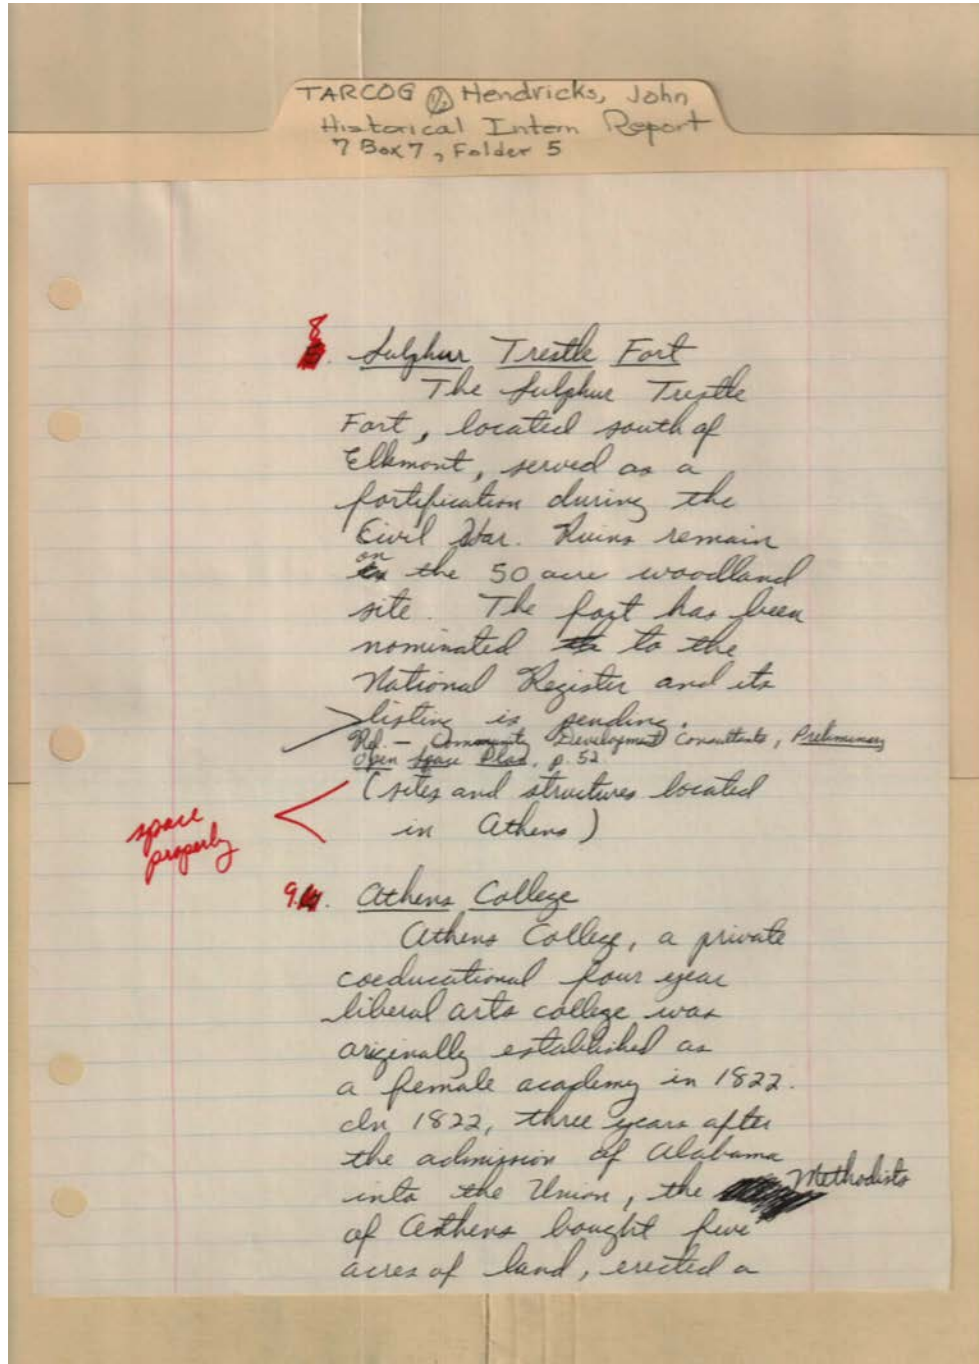 TARCOG Hendricks, John
Historical Intern Report
7 Box 7, Folder 5
8. Sulphur Trestle Fort
The Sulphur Trestle
Fort, located south of
Elkmont, served as a
fortification during the
Civil War. Ruins remain
on the 50 acre woodland
site. The fort has been
nominated to the
National Register and its
listing is pending.
Ref. - Community Development Consultants, Preliminary
Open Space Plan, p. 52
(sites and structures located
in Athens)
space
properly
9. Athens College
Athens College, a private
coeducational four year
liberal arts college was
originally established as
a female academy in 1822.
In 1822, three years after
the admission of Alabama
into the Union, the Methodists
of Athens bought five
acres of land, erected a